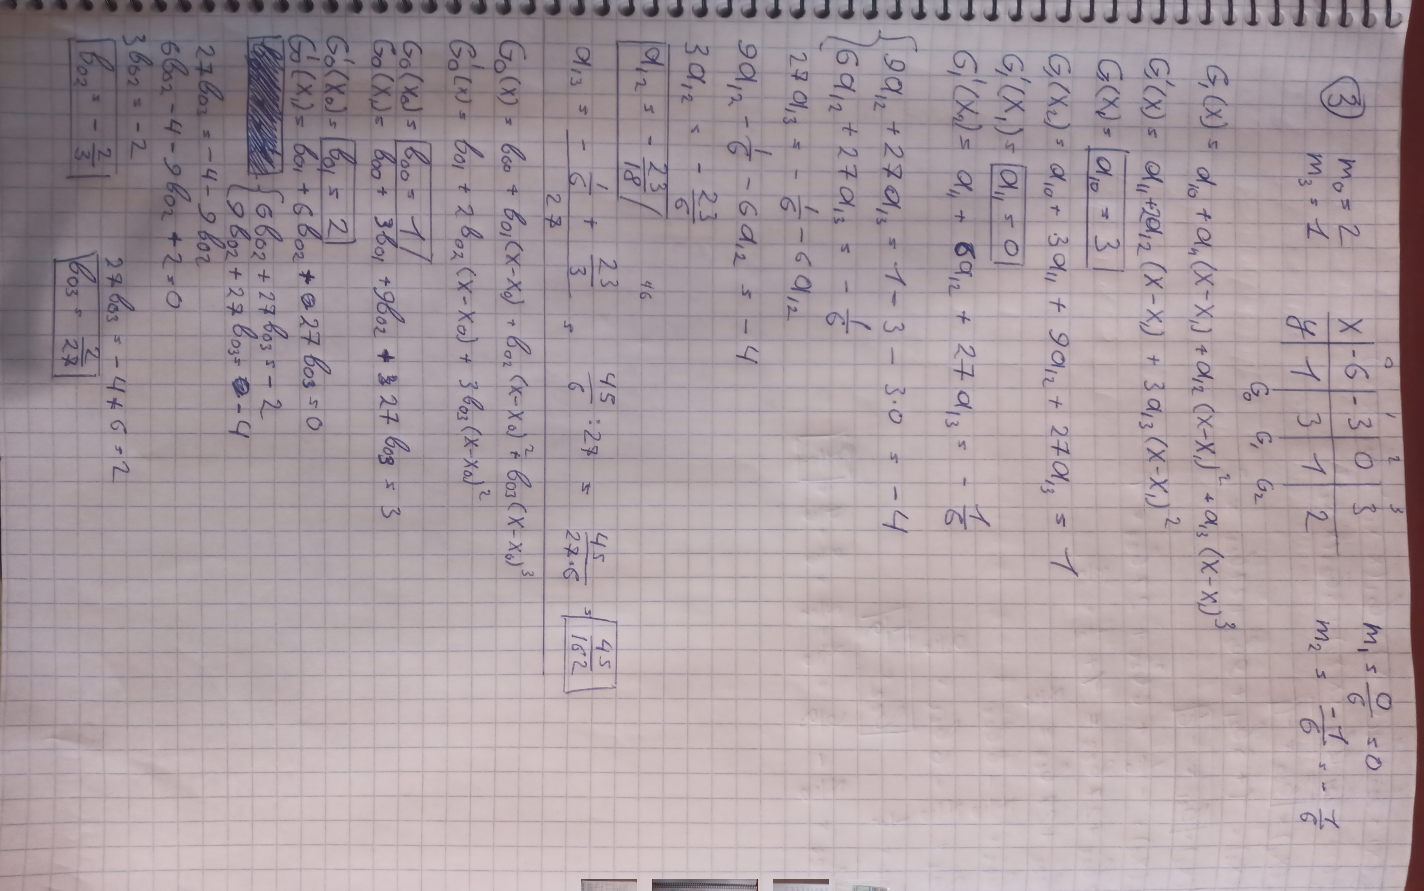 ③ m₀ = 2
m₃ = 1
0 1 2 3
x | -6 | -3 | 0 | 3
y | 1 | 3 | 1 | 2
G₀ G₁ G₂
m₁ = 0/6 = 0
m₂ = -1/6 = -1/6
G₁(x) = a₁₀ + a₁₁(x-x₁) + a₁₂(x-x₁)² + a₁₃(x-x₁)³
G₁'(x) = a₁₁ + 2a₁₂(x-x₁) + 3a₁₃(x-x₁)²
G₁(x₁) = a₁₀ = 3
G₁(x₂) = a₁₀ + 3a₁₁ + 9a₁₂ + 27a₁₃ = 1
G₁'(x₁) = a₁₁ = 0
G₁'(x₂) = a₁₁ + 6a₁₂ + 27a₁₃ = -1/6
{ 9a₁₂ + 27a₁₃ = 1 - 3 - 3·0 = -4
{ 6a₁₂ + 27a₁₃ = -1/6
27a₁₃ = -1/6 - 6a₁₂
9a₁₂ - 1/6 - 6a₁₂ = -4
3a₁₂ = -23/6
a₁₂ = -23/18
46
a₁₃ = (-1/6 + 23/3)/27 = 45/6 : 27 = 45/(27·6) = 45/162
G₀(x) = b₀₀ + b₀₁(x-x₀) + b₀₂(x-x₀)² + b₀₃(x-x₀)³
G₀'(x) = b₀₁ + 2b₀₂(x-x₀) + 3b₀₃(x-x₀)²
G₀(x₀) = b₀₀ = 1
G₀(x₁) = b₀₀ + 3b₀₁ + 9b₀₂ + 27b₀₃ = 3
G₀'(x₀) = b₀₁ = 2
G₀'(x₁) = b₀₁ + 6b₀₂ + 27b₀₃ = 0
{ 6b₀₂ + 27b₀₃ = -2
{ 9b₀₂ + 27b₀₃ = -4
27b₀₃ = -4 - 9b₀₂
6b₀₂ - 4 - 9b₀₂ + 2 = 0
3b₀₂ = -2
b₀₂ = -2/3
27b₀₃ = -4 + 6 = 2
b₀₃ = 2/27